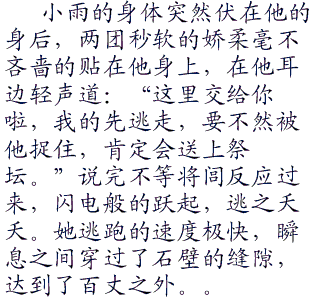 小雨的身体突然伏在他的
身后，两团秒软的娇柔毫不
吝啬的贴在他身上，在他耳
边轻声道：“这里交给你
啦，我的先逃走，要不然被
他捉住，肯定会送上祭
坛。”说完不等将闾反应过
来，闪电般的跃起，逃之夭
夭。她逃跑的速度极快，瞬
息之间穿过了石壁的缝隙，
达到了百丈之外。。